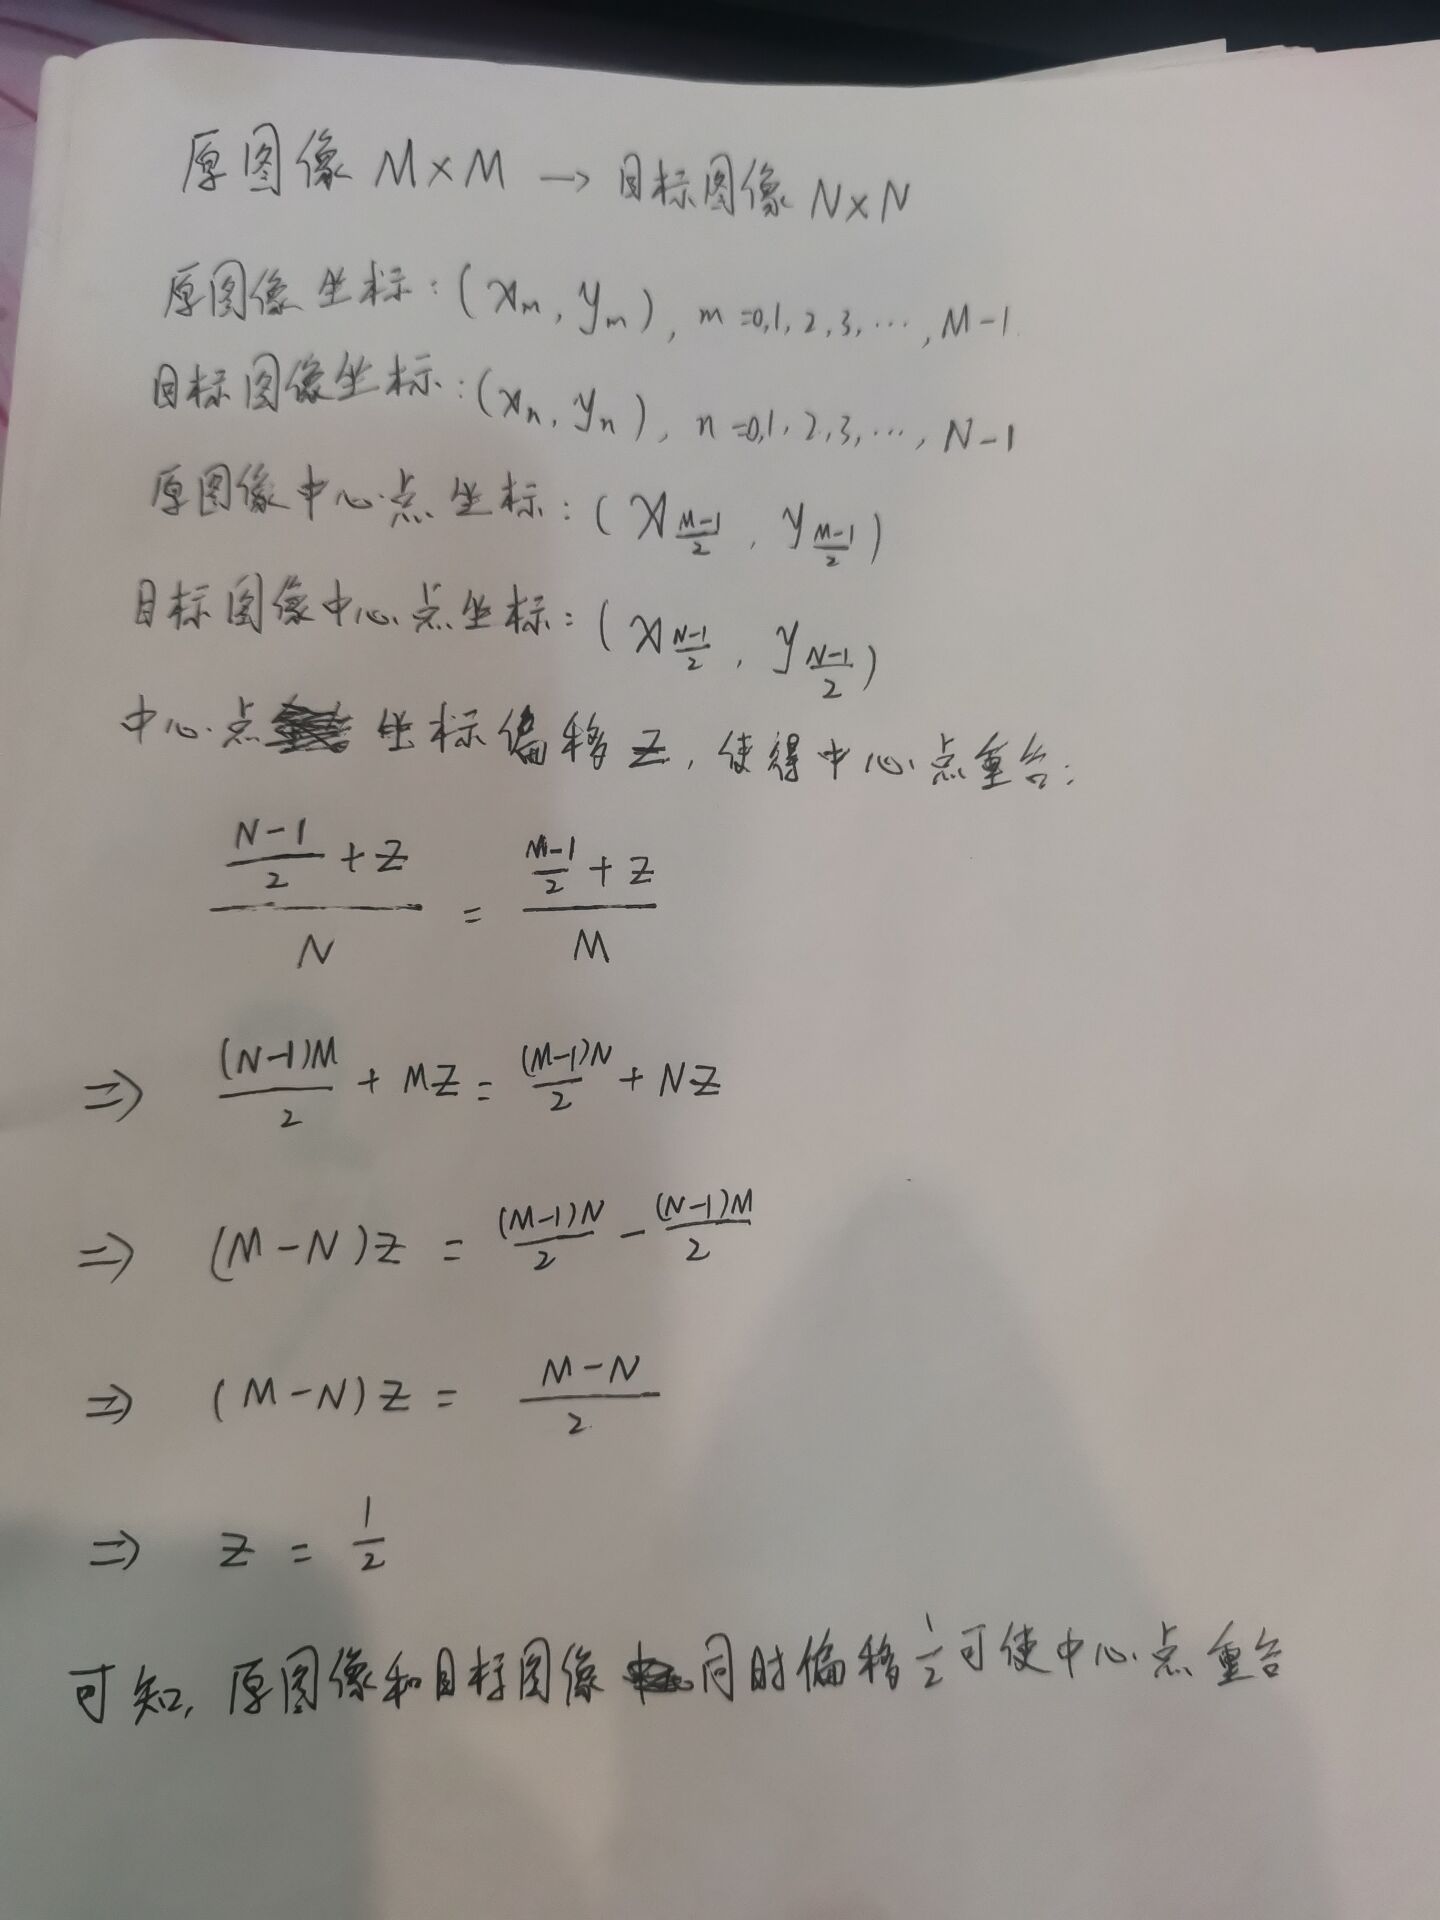 原图像 M×M → 目标图像 N×N
原图像坐标：(x_m, y_m), m=0,1,2,3,…,M-1
目标图像坐标：(x_n, y_n), n=0,1,2,3,…,N-1
原图像中心点坐标：(x_{\frac{M-1}{2}}, y_{\frac{M-1}{2}})
目标图像中心点坐标：(x_{\frac{N-1}{2}}, y_{\frac{N-1}{2}})
中心点坐标偏移z，使得中心点重合：
\frac{\frac{N-1}{2}+z}{N} = \frac{\frac{M-1}{2}+z}{M}
⇒ \frac{(N-1)M}{2} + Mz = \frac{(M-1)N}{2} + Nz
⇒ (M-N)z = \frac{(M-1)N}{2} - \frac{(N-1)M}{2}
⇒ (M-N)z = \frac{M-N}{2}
⇒ z = \frac{1}{2}
可知，原图像和目标图像同时偏移\frac{1}{2}可使中心点重合